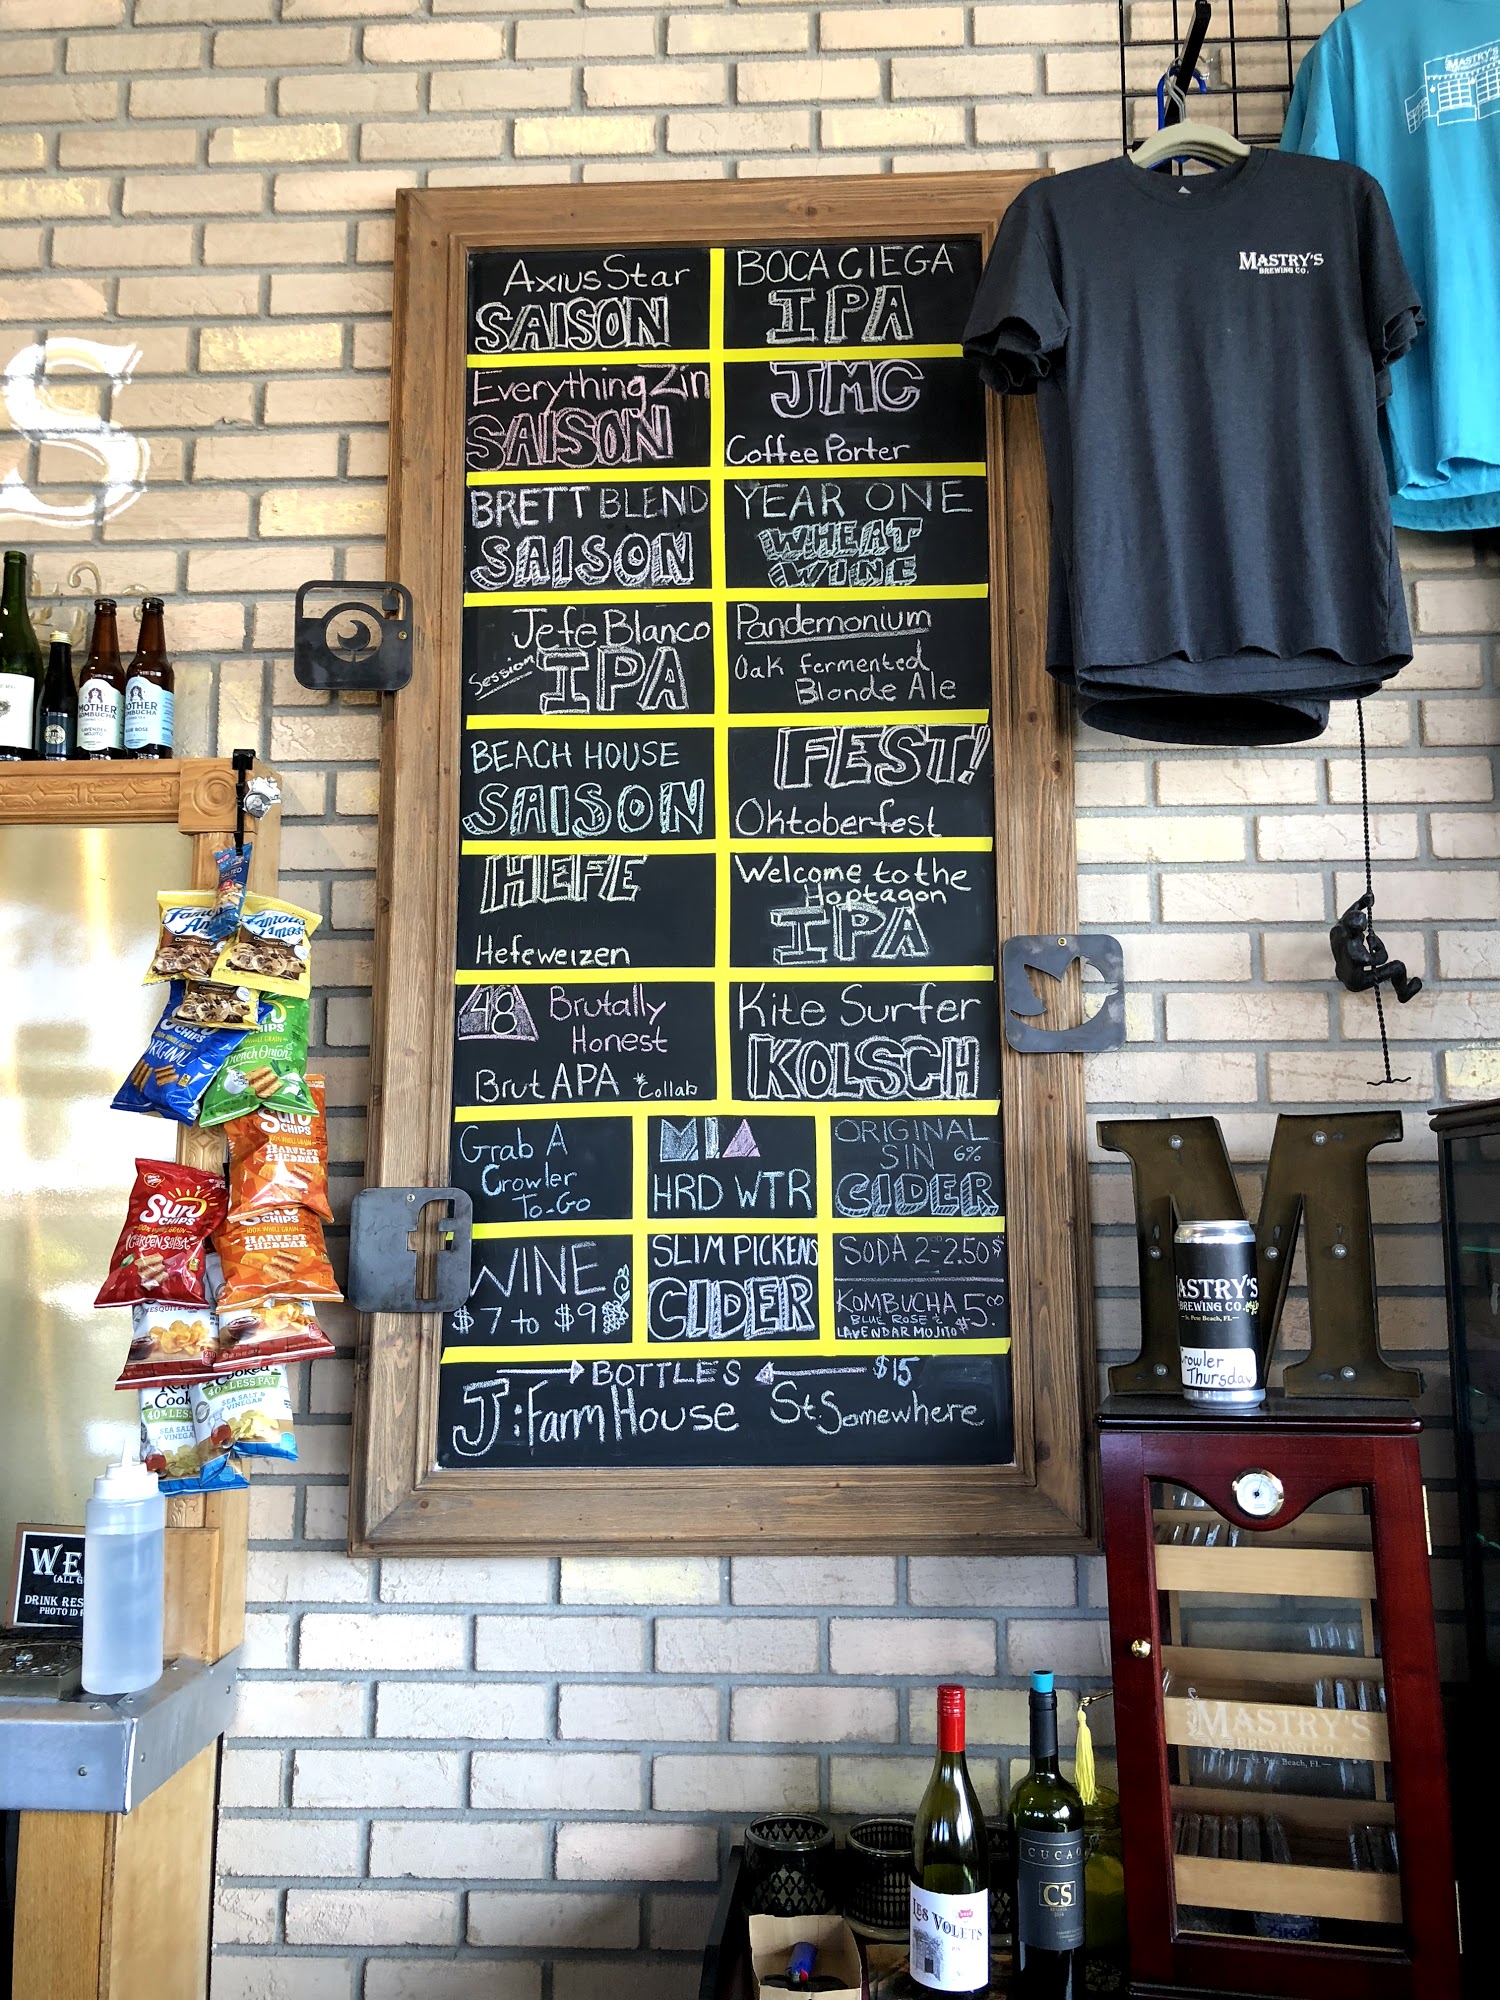 Axius Star
SAISON
BOCA CIEGA
IPA
Everything Zin
SAISON
JMC
Coffee Porter
BRETT BLEND
SAISON
YEAR ONE
WHEAT
WINE
Jefe Blanco
Session
IPA
Pandemonium
Oak fermented
Blonde Ale
BEACH HOUSE
SAISON
FEST!
Oktoberfest
HEFE
Hefeweizen
Welcome to the
Hoptagon
IPA
48
Brutally
Honest
Brut APA *Collab
Kite Surfer
KOLSCH
Grab A
Crowler
To-Go
MIA
HRD WTR
ORIGINAL
SIN 6%
CIDER
WINE
$7 to $9
SLIM PICKENS
CIDER
SODA 2-2.50$
KOMBUCHA $5.00
BLUE ROSE &
LAVENDAR MOJITO
BOTTLES $15
JJ:Farm House St Somewhere
MASTRY'S
BREWING CO.
MASTRY'S
S
MOTHER
KOMBUCHA
LAVENDER
MOJITO
MOTHER
KOMBUCHA
BLUE ROSE
SALTED
Famous
Amos
Famous
Amos
CHIPS
ORIGINAL
CHIPS
WHOLE GRAIN
French Onion
Sun
CHIPS
100% WHOLE GRAIN
HARVEST
CHEDDAR
Sun
CHIPS
100% WHOLE GRAIN
GARDEN SALSA
100% WHOLE GRAIN
HARVEST
CHEDDAR
MESQUITE
Cook
40% LESS
SEA SALT
VINEGAR
Cooked
40% LESS FAT
SEA SALT &
VINEGAR
WE
(ALL
DRINK RES
PHOTO ID
6
M
MASTRY'S
BREWING CO.
St. Pete Beach, FL
Crowler
Thursday
MASTRY'S
BREWING CO.
St. Pete Beach, FL
LES VOLETS
CUCAO
CS